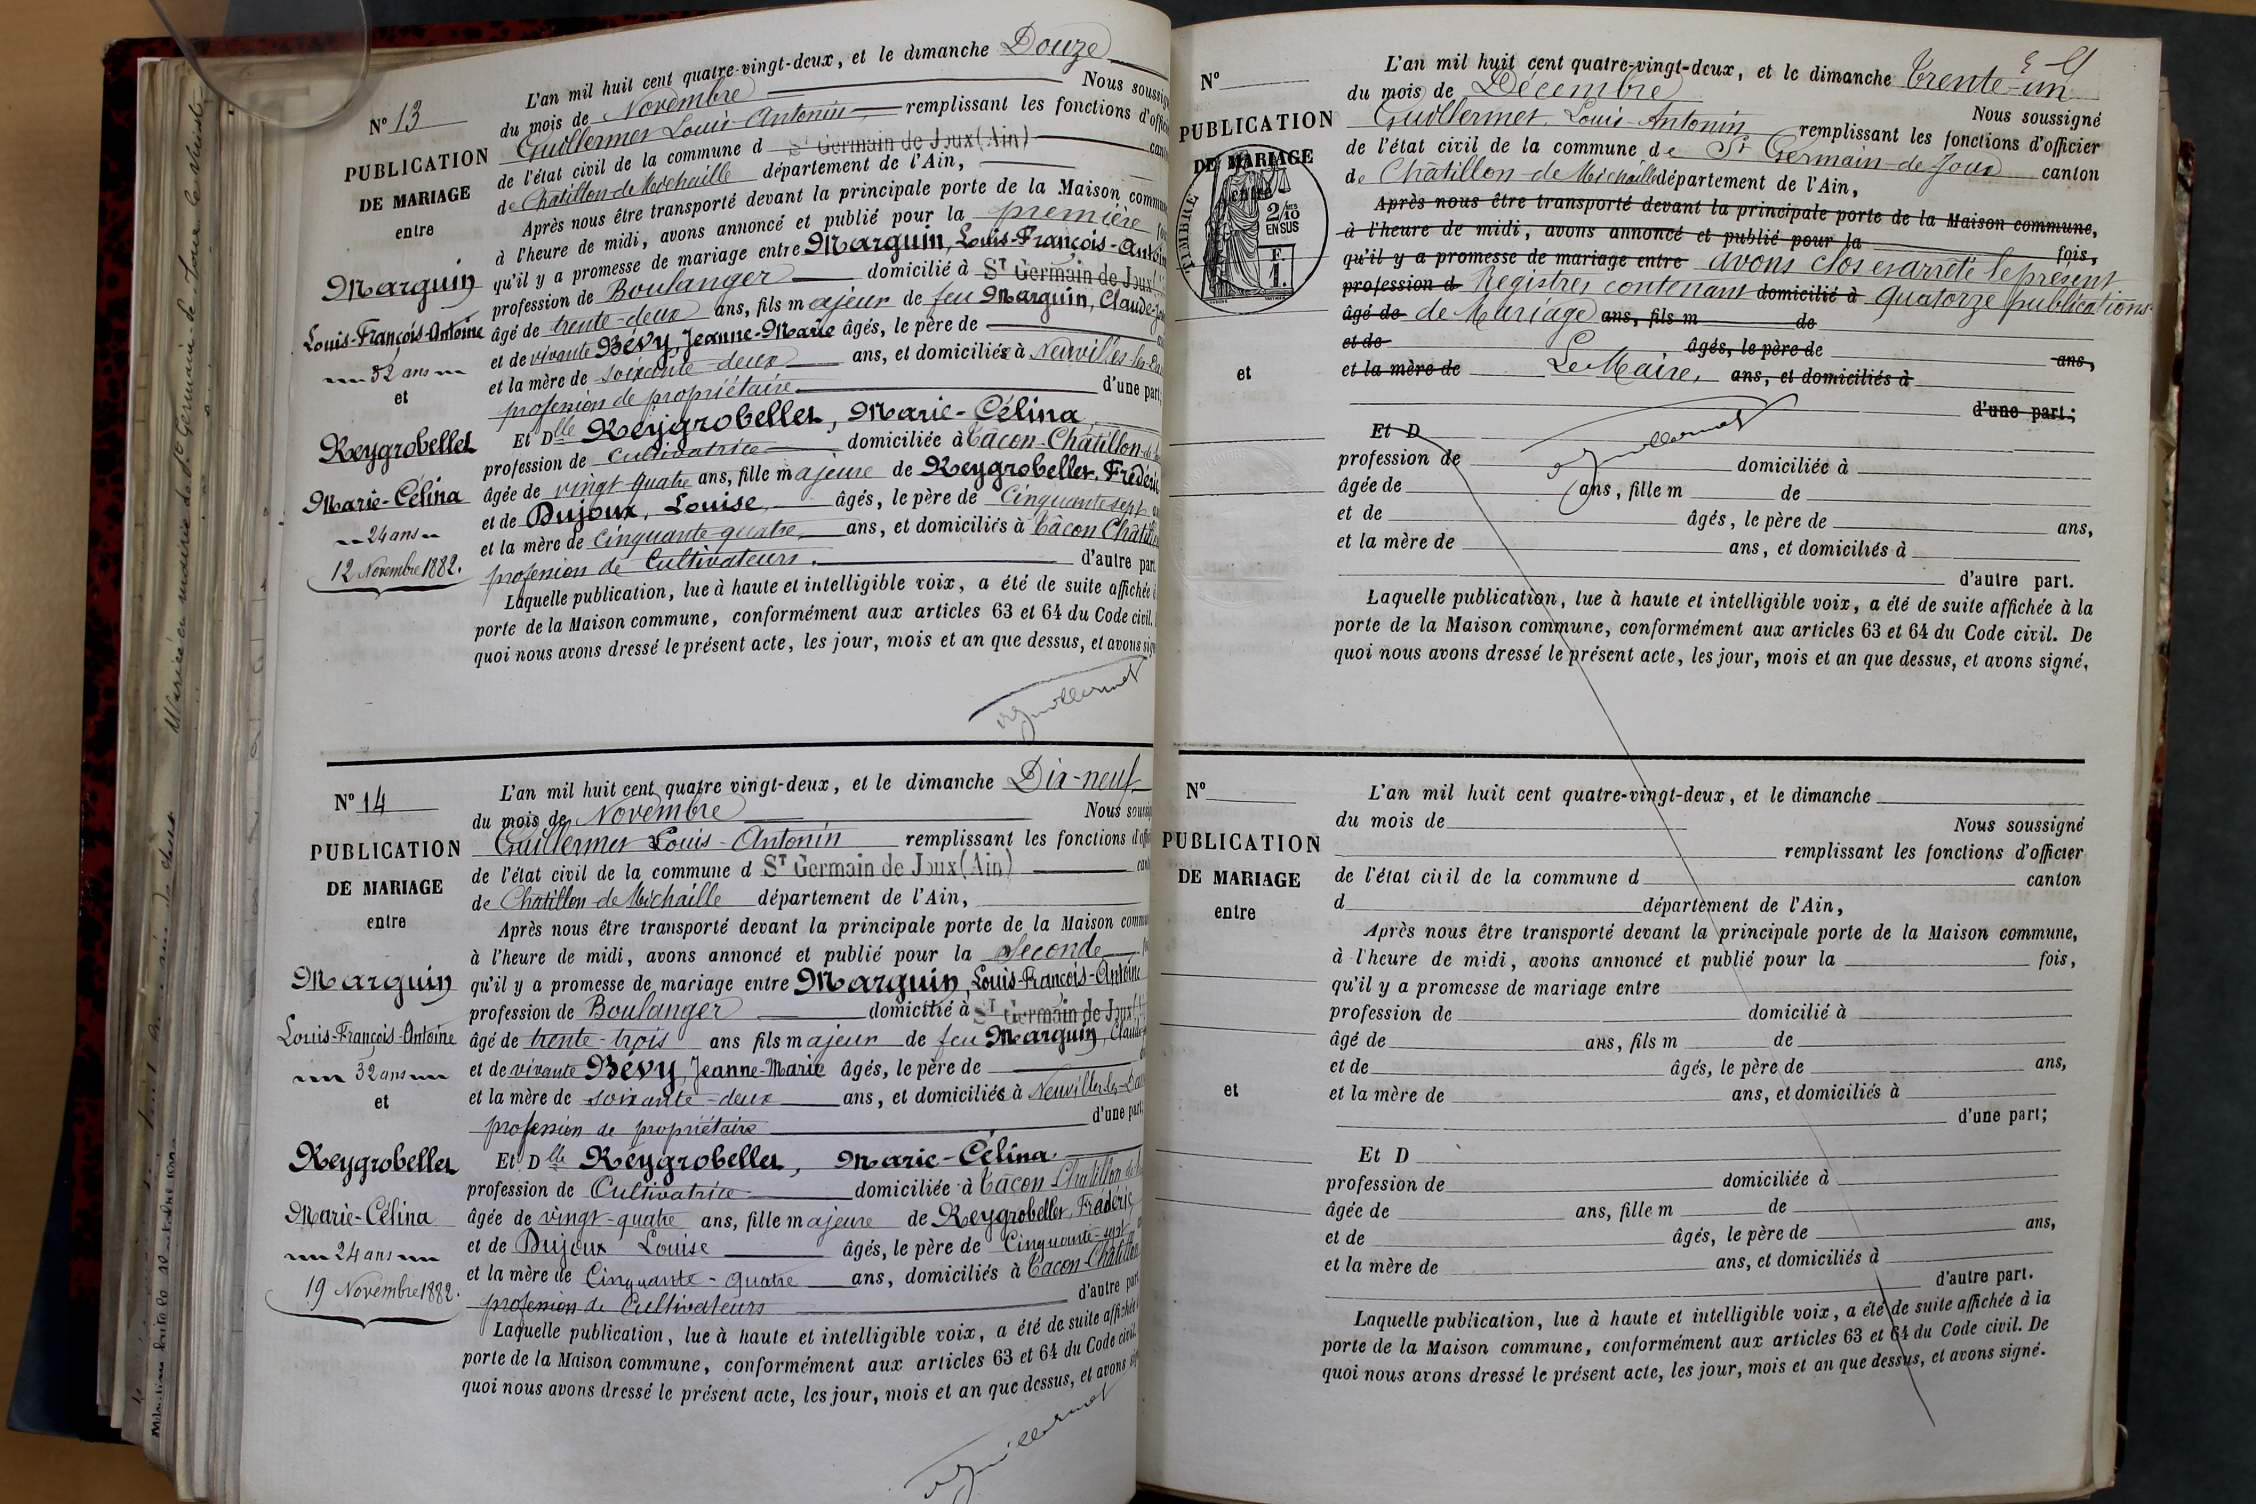 L'an mil huit cent quatre-vingt-deux, et le dimanche Douze
du mois de Novembre Nous soussig
Guillermet Louis-Antonin remplissant les fonctions d'offic
de l'état civil de la commune d St Germain de Joux (Ain) cant
de Châtillon-de-Michaille département de l'Ain,
Après nous être transporté devant la principale porte de la Maison commun
à l'heure de midi, avons annoncé et publié pour la première fo
qu'il y a promesse de mariage entre Marguin, Louis-François-Antoin
profession de Boulanger domicilié à St Germain de Joux
âgé de trente-deux ans, fils majeur de feu Marguin, Claude
et de vivante Bévy, Jeanne-Marie âgés, le père de
et la mère de soixante-deux ans, et domiciliés à Neuville-les-Da
profession de propriétaire d'une part;
Et Dlle Reygrobellet, Marie-Célina
profession de Cultivatrice domiciliée à Tâcon-Châtillon-de
âgée de vingt-quatre ans, fille majeure de Reygrobellet, Frédéric
et de Dujoux, Louise, âgés, le père de Cinquante sept
et la mère de Cinquante-quatre ans, et domiciliés à Tâcon Châtill
profession de Cultivateurs. d'autre part
Laquelle publication, lue à haute et intelligible voix, a été de suite affichée
porte de la Maison commune, conformément aux articles 63 et 64 du Code civil.
quoi nous avons dressé le présent acte, les jour, mois et an que dessus, et avons sig
Guillermet
No 13
PUBLICATION
DE MARIAGE
entre
Marguin
Louis-François-Antoine
32 ans
et
Reygrobellet
Marie-Célina
24 ans
12 Novembre 1882.
L'an mil huit cent quatre vingt-deux, et le dimanche Dix-neuf
du mois de Novembre Nous souss
Guillermet Louis-Antonin remplissant les fonctions d'offi
de l'état civil de la commune d St Germain de Joux (Ain) cant
de Châtillon-de-Michaille département de l'Ain,
Après nous être transporté devant la principale porte de la Maison commu
à l'heure de midi, avons annoncé et publié pour la Seconde
qu'il y a promesse de mariage entre Marguin, Louis-François-Antoine
profession de Boulanger domicilié à St Germain de Joux
âgé de trente-trois ans fils majeur de feu Marguin, Claude
et de vivante Bévy, Jeanne-Marie âgés, le père de
et la mère de soixante-deux ans, et domiciliés à Neuville-les-Da
profession de propriétaire d'une part;
Et Dlle Reygrobellet, Marie-Célina
profession de Cultivatrice domiciliée à Tâcon-Châtillon de
âgée de vingt-quatre ans, fille majeure de Reygrobellet, Frédéric
et de Dujoux Louise âgés, le père de Cinquante-sept
et la mère de Cinquante-quatre ans, domiciliés à Tâcon-Châtillon
profession de Cultivateurs d'autre part
Laquelle publication, lue à haute et intelligible voix, a été de suite affichée
porte de la Maison commune, conformément aux articles 63 et 64 du Code civil.
quoi nous avons dressé le présent acte, les jour, mois et an que dessus, et avons si
Guillermet
No 14
PUBLICATION
DE MARIAGE
entre
Marguin
Louis-François-Antoine
32 ans
et
Reygrobellet
Marie-Célina
24 ans
19 Novembre 1882.
L'an mil huit cent quatre-vingt-deux, et le dimanche Trente-un
du mois de Décembre Nous soussigné
Guillermet, Louis-Antonin remplissant les fonctions d'officier
de l'état civil de la commune de St Germain-de-Joux canton
de Châtillon-de-Michaille département de l'Ain,
Après nous être transporté devant la principale porte de la Maison commune,
à l'heure de midi, avons annoncé et publié pour la fois,
qu'il y a promesse de mariage entre avons clos et arrêté le présent
profession d Registres contenant domicilié à quatorze publications
âgé de de Mariage ans, fils m de
et de âgés, le père de ans,
et la mère de Le Maire, ans, et domiciliés à
d'une part;
Guillermet
Et D
profession de domiciliée à
âgée de ans, fille m de
et de âgés, le père de ans,
et la mère de ans, et domiciliés à
d'autre part.
Laquelle publication, lue à haute et intelligible voix, a été de suite affichée à la
porte de la Maison commune, conformément aux articles 63 et 64 du Code civil. De
quoi nous avons dressé le présent acte, les jour, mois et an que dessus, et avons signé.
No
PUBLICATION
DE MARIAGE
entre
TIMBRE
2/10
EN SUS
F
1.
et
L'an mil huit cent quatre-vingt-deux, et le dimanche
du mois de Nous soussigné
remplissant les fonctions d'officier
de l'état civil de la commune d canton
d département de l'Ain,
Après nous être transporté devant la principale porte de la Maison commune,
à l'heure de midi, avons annoncé et publié pour la fois,
qu'il y a promesse de mariage entre
profession de domicilié à
âgé de ans, fils m de
et de âgés, le père de ans,
et la mère de ans, et domiciliés à
d'une part;
Et D
profession de domiciliée à
âgée de ans, fille m de
et de âgés, le père de ans,
et la mère de ans, et domiciliés à
d'autre part.
Laquelle publication, lue à haute et intelligible voix, a été de suite affichée à la
porte de la Maison commune, conformément aux articles 63 et 64 du Code civil. De
quoi nous avons dressé le présent acte, les jour, mois et an que dessus, et avons signé.
No
PUBLICATION
DE MARIAGE
entre
et